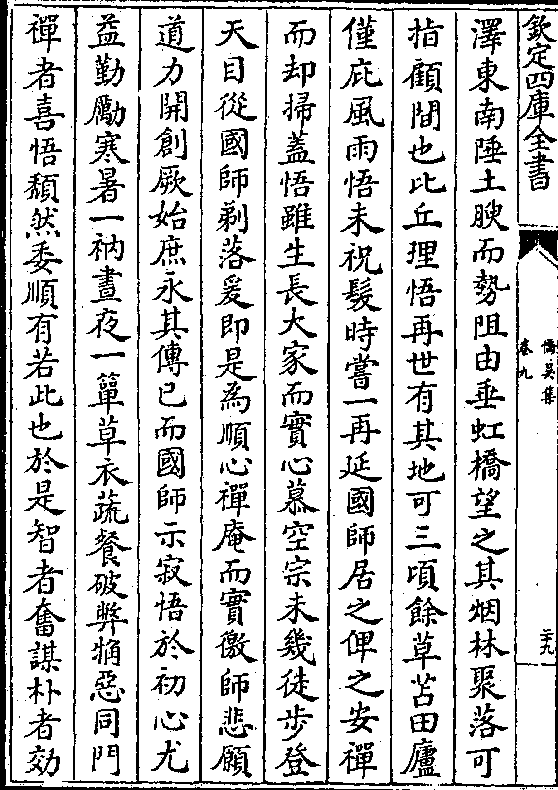 欽定四庫全書
僑吳集
卷九
二十九
澤東南陲土腴而勢阻由垂虹橋望之其烟林聚落可
指顧間也比丘理悟再世有其地可三頃餘草苫田廬
僅庇風雨悟未祝髮時嘗一再延國師居之俾之安禪
而却掃蓋悟雖生長大家而實心慕空宗未幾徒步登
天目從國師剃落爰即是為順心禪庵而實徼師悲願
道力開創厥始庶永其傳已而國師示寂悟於初心尤
益勤勵寒暑一衲晝夜一簞草衣蔬餐破弊觕惡同門
禪者喜悟頹然委順有若此也於是智者奮謀朴者効